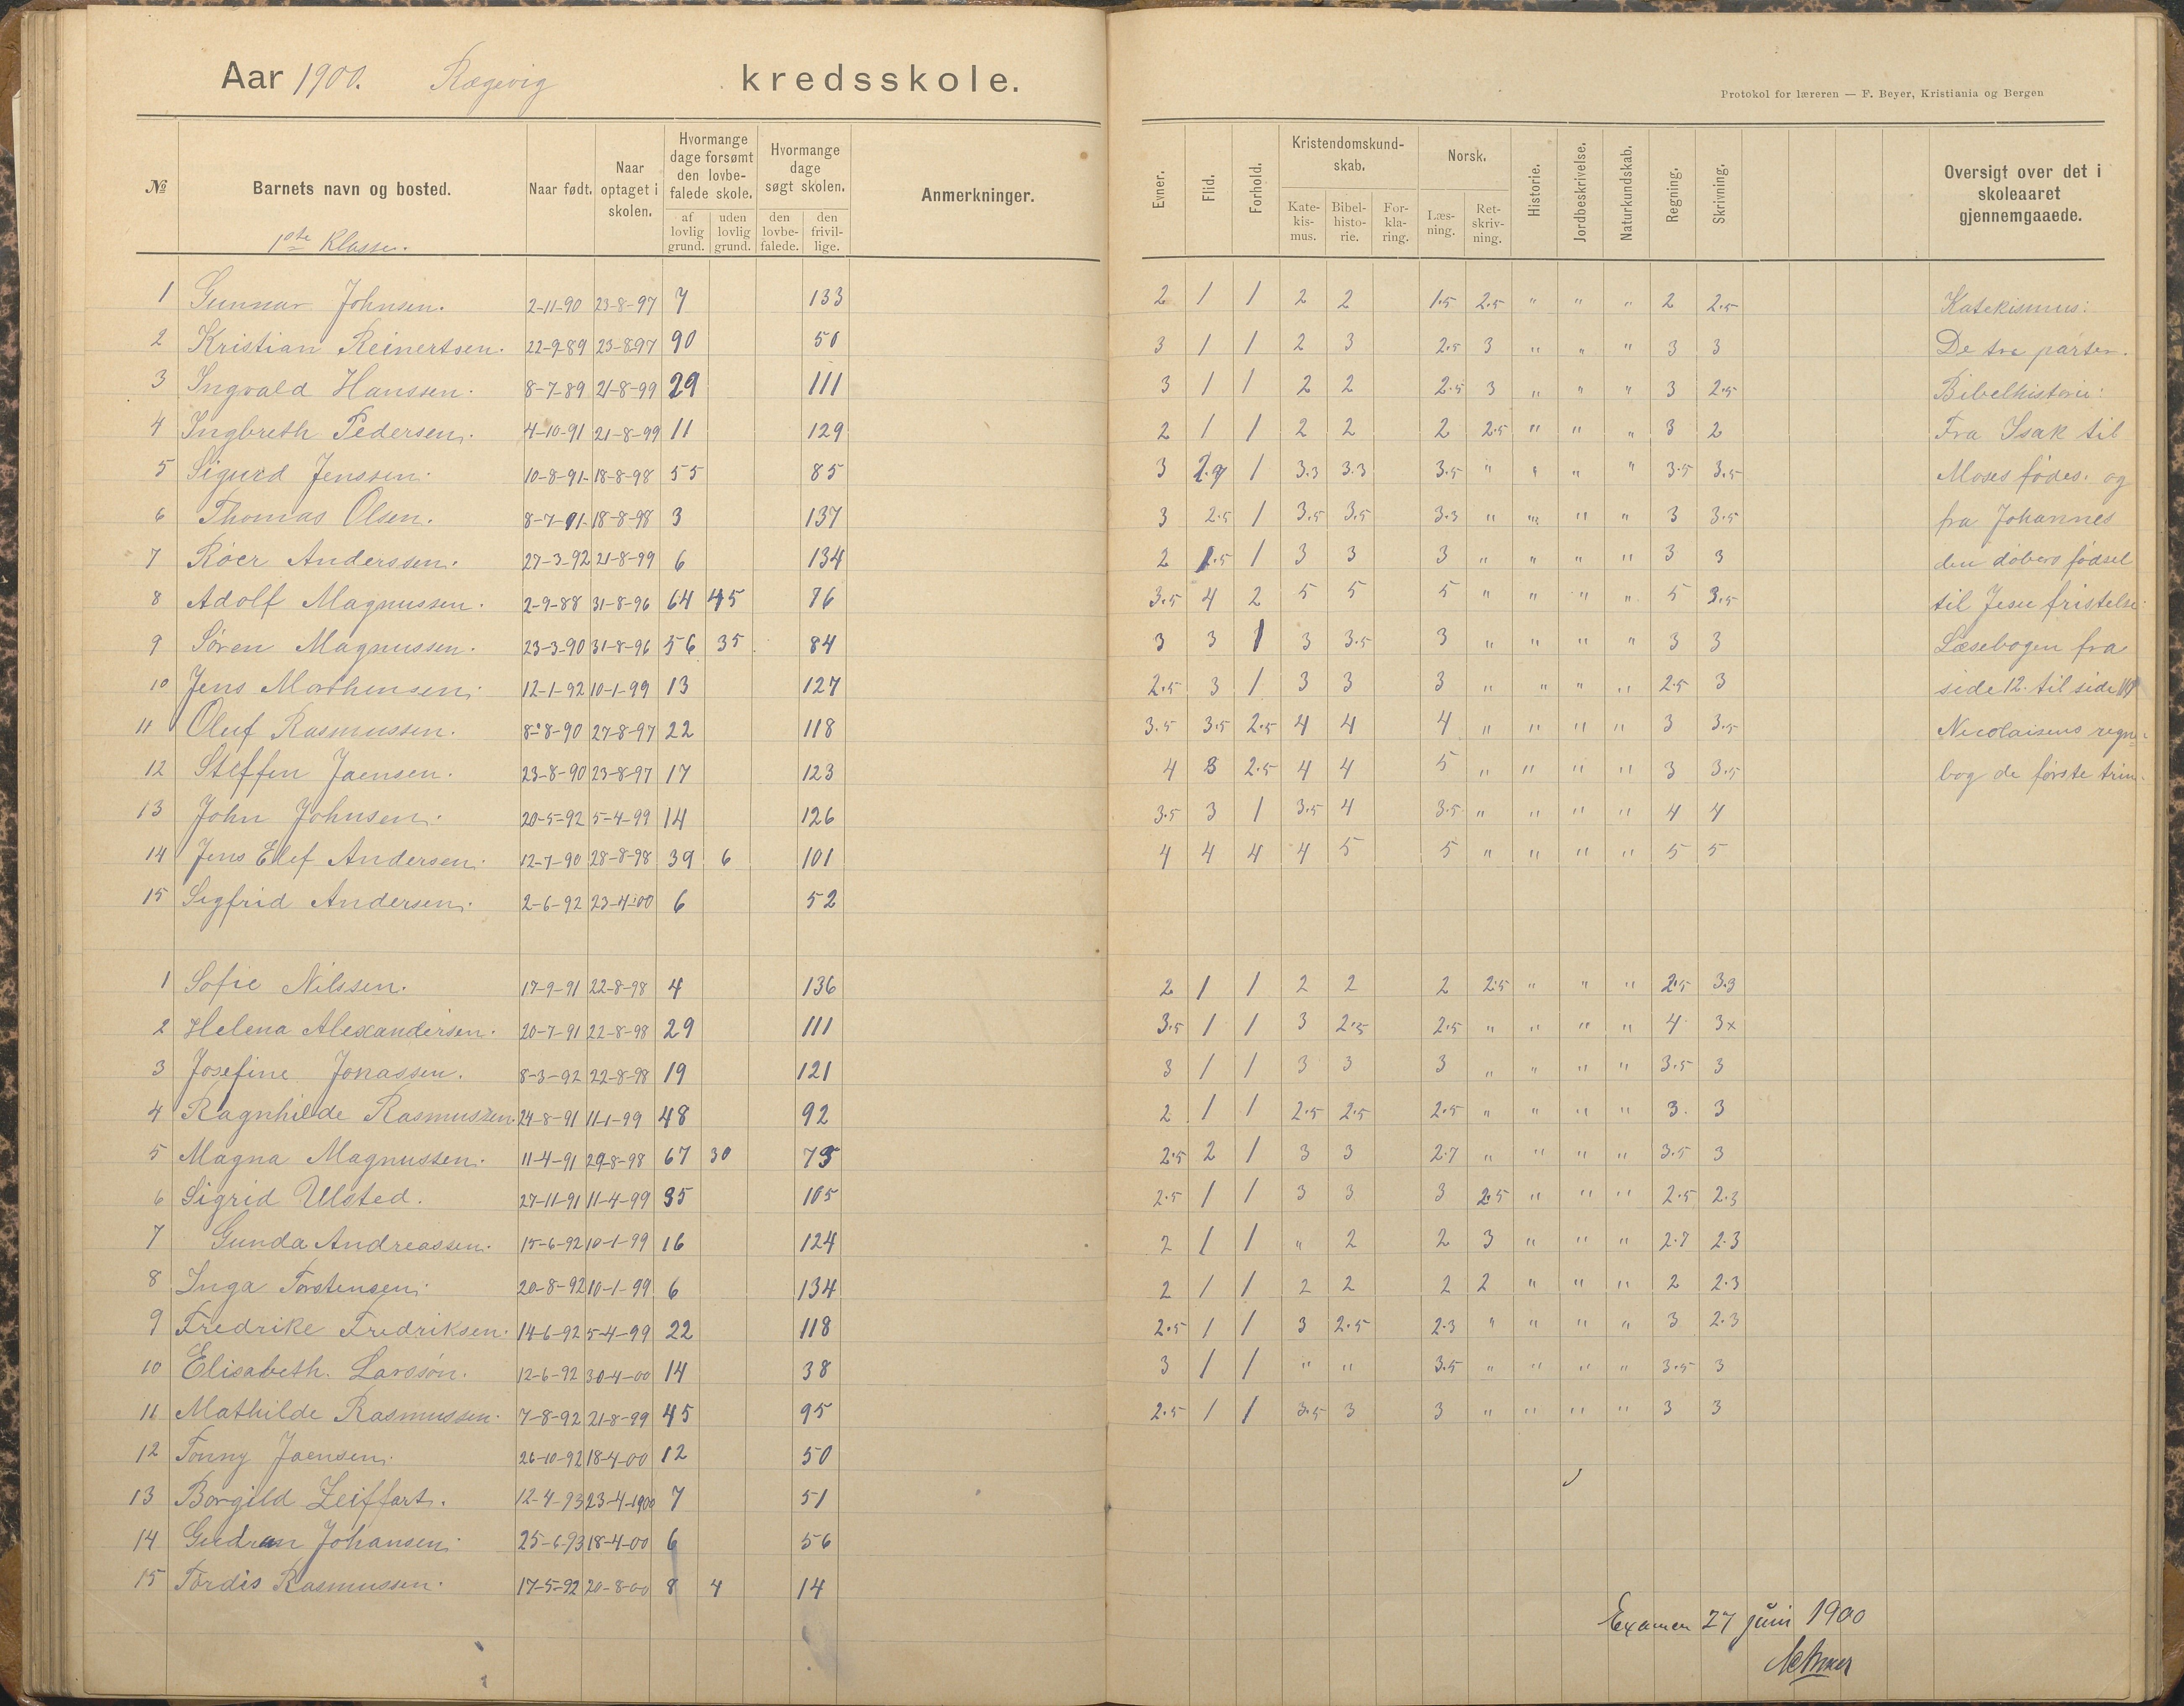 Aar 1900. Rægevig kredsskole.
Protokol for læreren — F. Beyer, Kristiania og Bergen
№ Barnets navn og bosted. Naar født. Naar optaget i skolen. Hvormange dage forsømt den lovbefalede skole. af lovlig grund. uden lovlig grund. Hvormange dage søgt skolen. den lovbefalede. den frivillige. Anmerkninger. Evner. Flid. Forhold. Kristendomskundskab. Katekismus. Bibelhistorie. Forklaring. Norsk. Læsning. Retskrivning. Historie. Jordbeskrivelse. Naturkundskab. Regning. Skrivning. Oversigt over det i skoleaaret gjennemgaaede.
1ste Klasse.
1 Gunnar Johnsen. 2-11-90 23-8-97 7 133 2 1 1 2 2 1.5 2.5 " " " 2 2.5 Katekismus:
2 Kristian Reinertsen. 22-9-89 23-8-97 90 50 3 1 1 2 3 2.5 3 " " " 3 3 De tre parter.
3 Ingvald Hanssen. 8-7-89 21-8-99 29 111 3 1 1 2 2 2.5 3 " " " 3 2.5 Bibelhistorie:
4 Ingbreth Pedersen. 4-10-91 21-8-99 11 129 2 1 1 2 2 2 2.5 " " " 3 2 Fra Isak til
5 Sigurd Jenssen. 10-8-91 18-8-98 55 85 3 2.7 1 3.3 3.3 3.5 " " " " 3.5 3.5 Moses fødes. og
6 Thomas Olsen. 8-7-91 18-8-98 3 137 3 2.5 1 3.5 3.5 3.3 " " " " 3 3.5 fra Johannes
7 Roer Anderssen. 27-3-92 21-8-99 6 134 2 1.5 1 3 3 3 " " " " 3 3 den døbers fødsel
8 Adolf Magnussen. 2-9-88 31-8-96 64 45 76 3.5 4 2 5 5 5 " " " " 5 3.5 til Jesu fristelse:
9 Søren Magnussen. 23-3-90 31-8-96 56 35 84 3 3 1 3 3.5 3 " " " " 3 3 Læsebogen fra
10 Jens Morthensen. 12-1-92 10-1-99 13 127 2.5 3 1 3 3 3 " " " " 2.5 3 side 12. til side
11 Oluf Rasmussen. 8-8-90 27-8-97 22 118 3.5 3.5 2.5 4 4 4 " " " " 3 3.5 Nicolaisens regne-
12 Steffen Jaensen. 23-8-90 23-8-97 17 123 4 3 2.5 4 4 5 " " " " 3 3.5 bog de første trin.
13 John Johnsen. 20-5-92 5-4-99 14 126 3.5 3 1 3.5 4 3.5 " " " " 4 4
14 Jens Elef Andersen. 12-7-90 28-8-98 39 6 101 4 4 4 4 5 5 " " " " 5 5
15 Sigfrid Andersen. 2-6-92 23-4-00 6 52
1 Sofie Nilssen. 17-9-91 22-8-98 4 136 2 1 1 2 2 2 2.5 " " " 2.5 3.3
2 Helena Alexandersen. 20-7-91 22-8-98 29 111 3.5 1 1 3 2.5 2.5 " " " " 4 3x
3 Josefine Jonassen. 8-3-92 22-8-98 19 121 3 1 1 3 3 3 " " " " 3.5 3
4 Ragnhilde Rasmussen. 24-8-91 11-1-99 48 92 2 1 1 2.5 2.5 2.5 " " " " 3. 3
5 Magna Magnussen. 11-4-91 29-8-98 67 30 73 2.5 2 1 3 3 2.7 " " " " 3.5 3
6 Sigrid Ulsted. 27-11-91 11-4-99 35 105 2.5 1 1 3 3 3 2.5 " " " 2.5 2.3
7 Gunda Andreassen. 15-6-92 10-1-99 16 124 2 1 1 " 2 2 3 " " " 2.7 2.3
8 Inga Torstensen. 20-8-92 10-1-99 6 134 2 1 1 2 2 2 2 " " " 2 2.3
9 Fredrike Fredriksen. 14-6-92 5-4-99 22 118 2.5 1 1 3 2.5 2.3 " " " " 3 2.3
10 Elisabeth. Larssøn. 12-6-92 30-4-00 14 38 3 1 1 " " 3.5 " " " " 3.5 3
11 Mathilde Rasmussen. 7-8-92 21-8-99 45 95 2.5 1 1 3.5 3 3 " " " " 3 3
12 Tonny Jaensen. 26-10-92 18-4-00 12 50
13 Borgild Zeiffart. 12-4-93 23-4-1900 7 51
14 Gudrun Johansen. 25-6-93 18-4-00 6 56
15 Tordis Rasmussen. 17-5-92 20-8-00 8 4 14
Examen 27 juni 1900